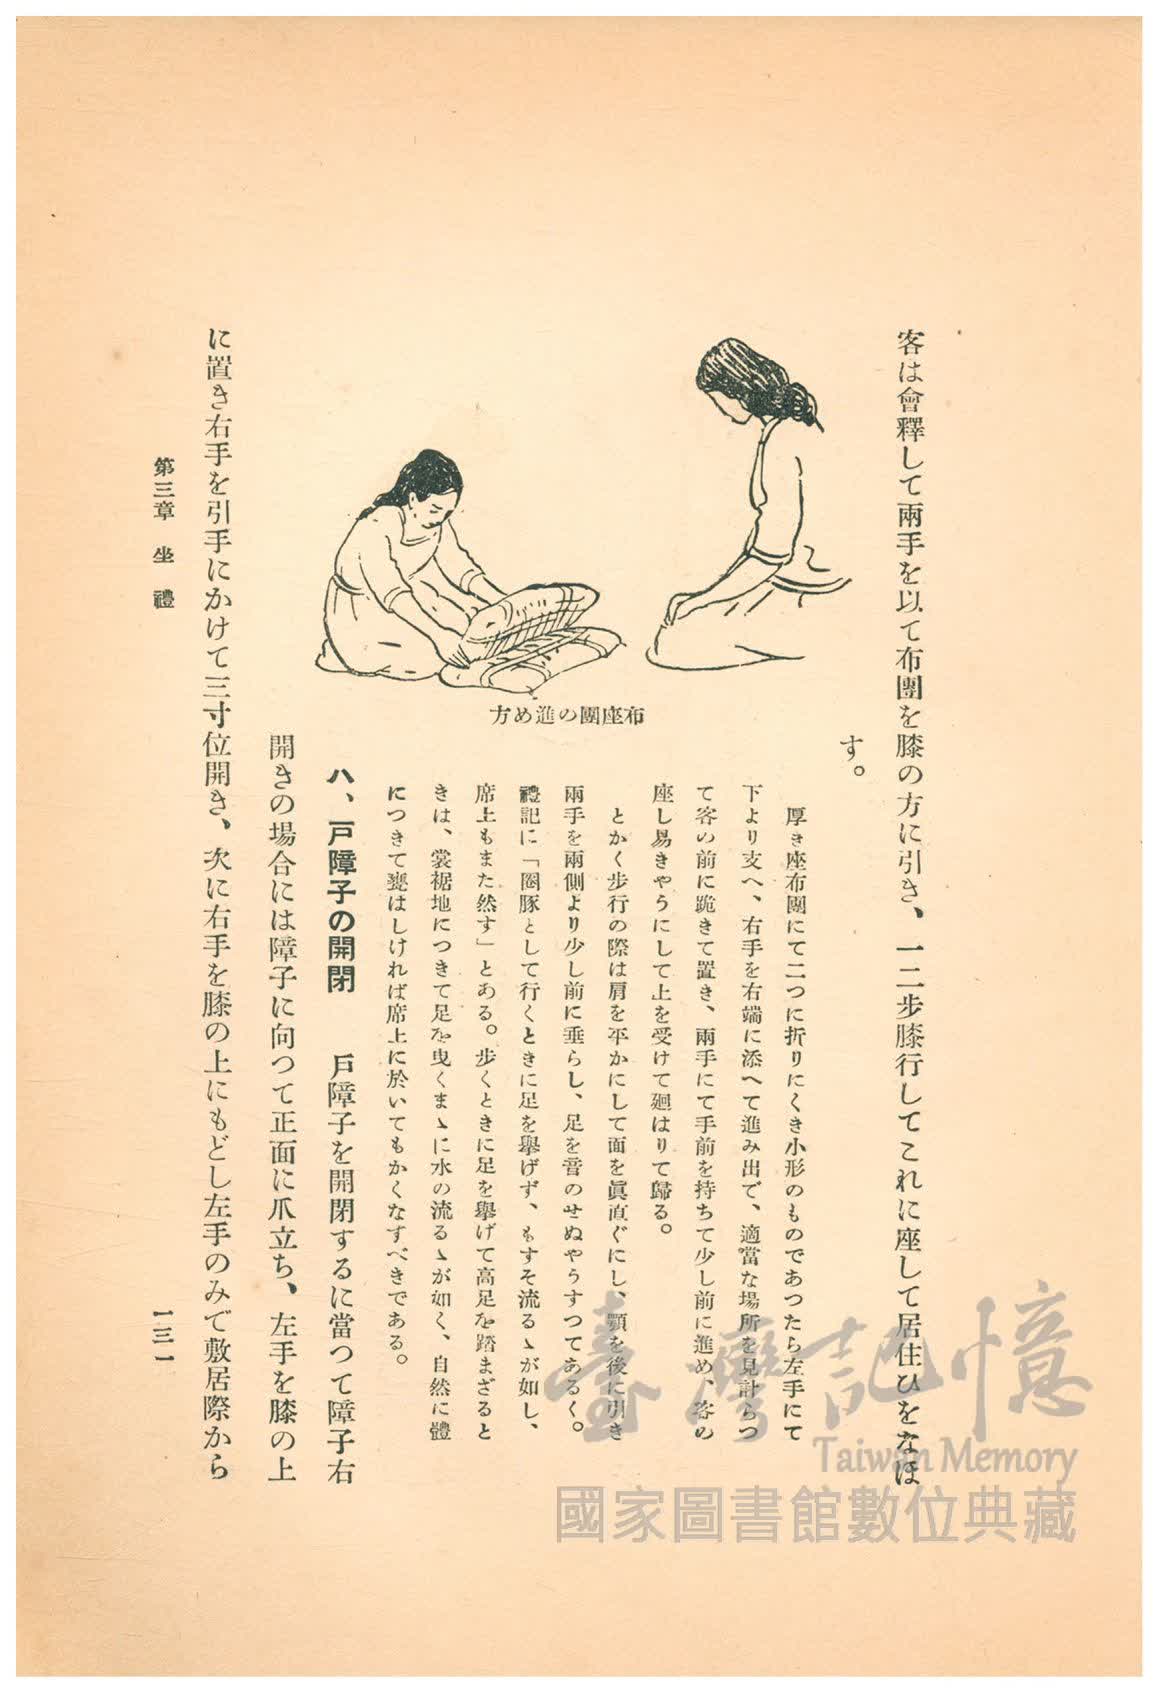 客は會釋して兩手を以て布團を膝の方に引き、一二步膝行してこれに座して居住ひをなほ
す。
布座團の進め方
厚き座布團にて二つに折りにくき小形のものであつたら左手にて
下より支へ、右手を右端に添へて進み出で、適當な場所を見計らつ
て客の前に跪きて置き、兩手にて手前を持ちて少し前に進め、客の
座し易きやうにして上を受けて廻はりて歸る。
とかく步行の際は肩を平かにして面を眞直ぐにし、顎を後に引き
兩手を兩側より少し前に垂らし、足を音のせぬやうすつてあるく。
禮記に「圈豚として行くときに足を擧げず、もすそ流るゝが如し、
席上もまた然す」とある。步くときに足を擧げて高足を踏まざると
きは、裳裾地につきて足を曳くまゝに水の流るゝが如く、自然に體
につきて甕はしければ席上に於いてもかくなすべきである。
八、戸障子の開閉　戸障子を開閉するに當つて障子右
開きの場合には障子に向つて正面に爪立ち、左手を膝の上
に置き右手を引手にかけて三寸位開き、次に右手を膝の上にもどし左手のみで敷居際から
第三章　坐禮
一三一
臺灣記憶
Taiwan Memory
國家圖書館數位典藏